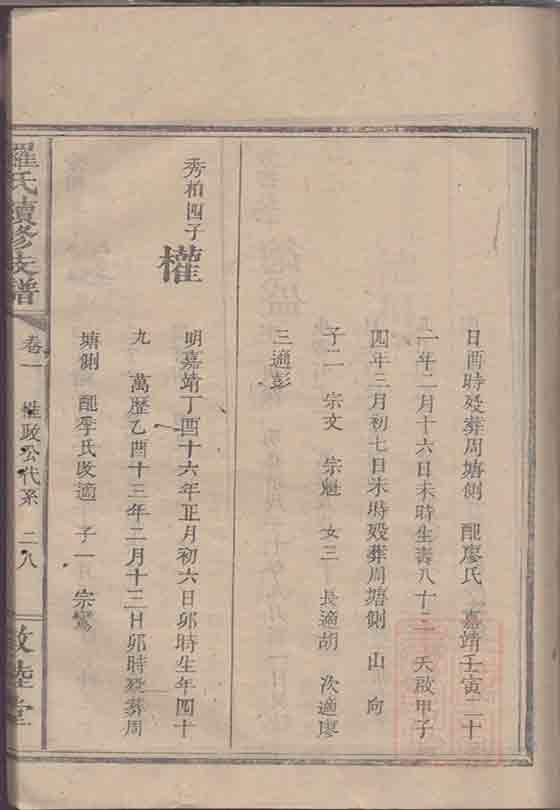 日酉時歿葬周塘側 配廖氏 嘉靖壬寅二十
一年二月十六日未時生壽八十三 天啟甲子
四年三月初七日未時歿葬周塘側 山 向
子二 宗文 宗魁 女三 長適胡 次適廖
三適彭
秀柏四子
權
明嘉靖丁酉十六年正月初六日卯時生年四十
九 萬歷乙酉十三年二月十三日卯時歿葬周
塘側 配李氏改適 子一 宗鸞
羅氏續修支譜
卷一 權政公代系 二八
敦睦堂